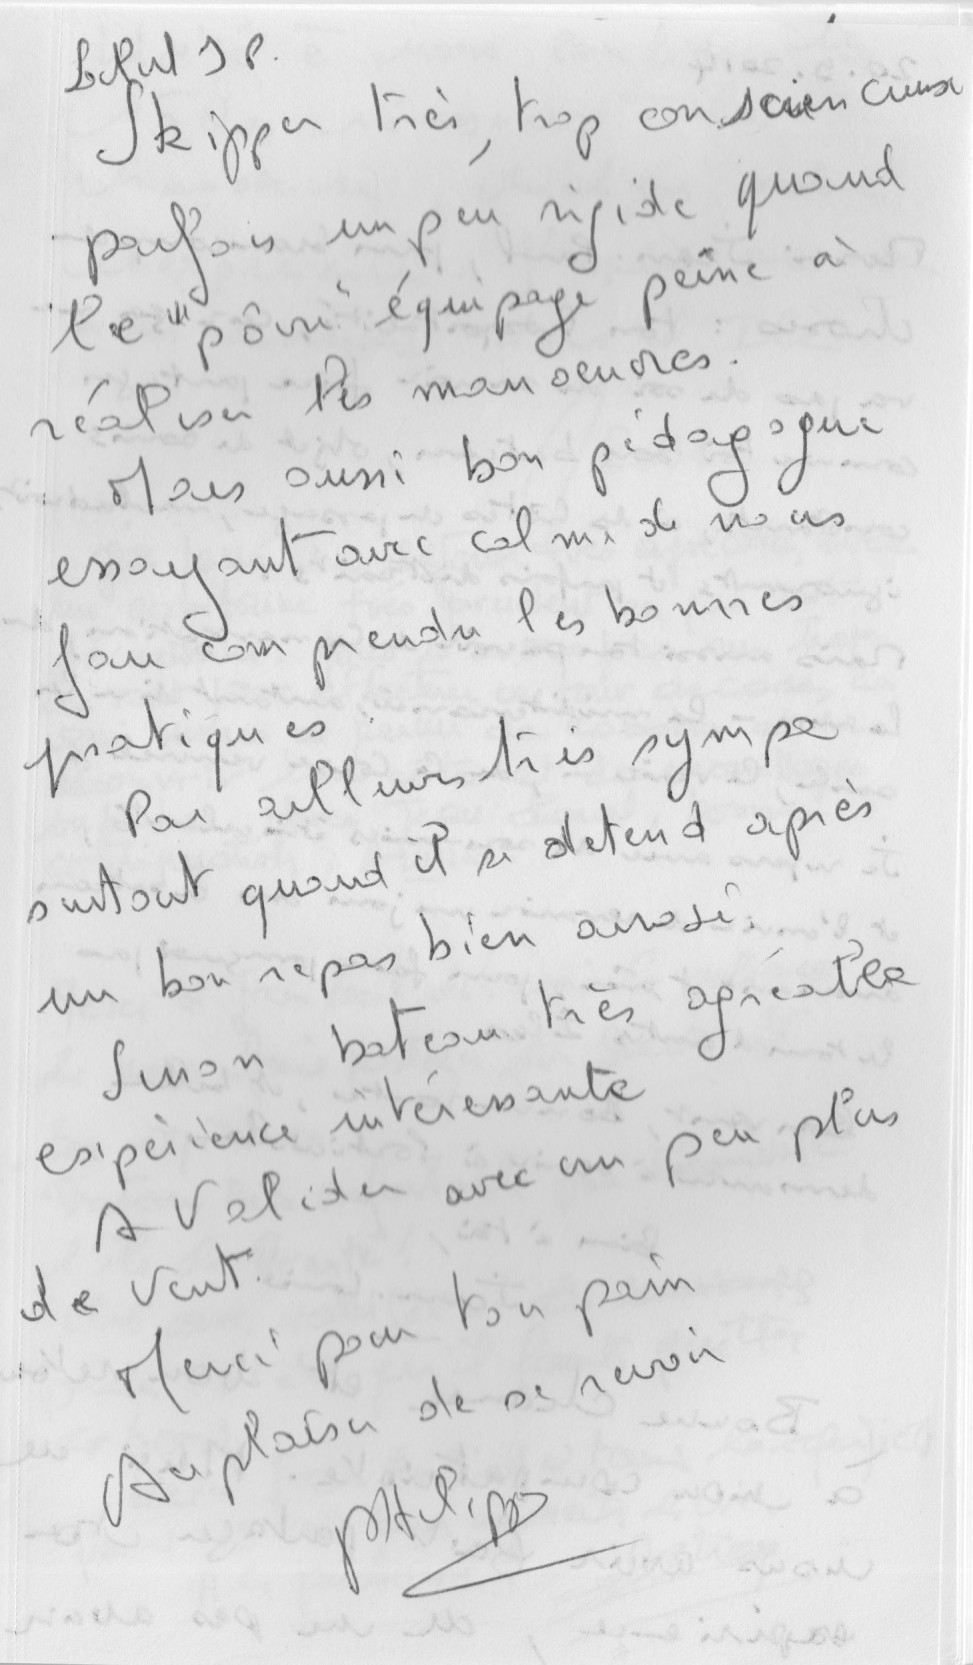 Salut J P.
Skipper très, trop consciencieux
parfois un peu rigide quand
le "pôvre" équipage peine à
réaliser les manoeuvres.
Mais aussi bon pédagogue
essayant avec calme de nous
faire comprendre les bonnes
pratiques.
Par ailleurs très sympa
surtout quand il se detend après
un bon repas bien arrosé.
Sinon bateau très agréable
expérience intéressante
A Valider avec un peu plus
de vent.
Merci pour ton pain
Au plaisir de se revoir
Philippe